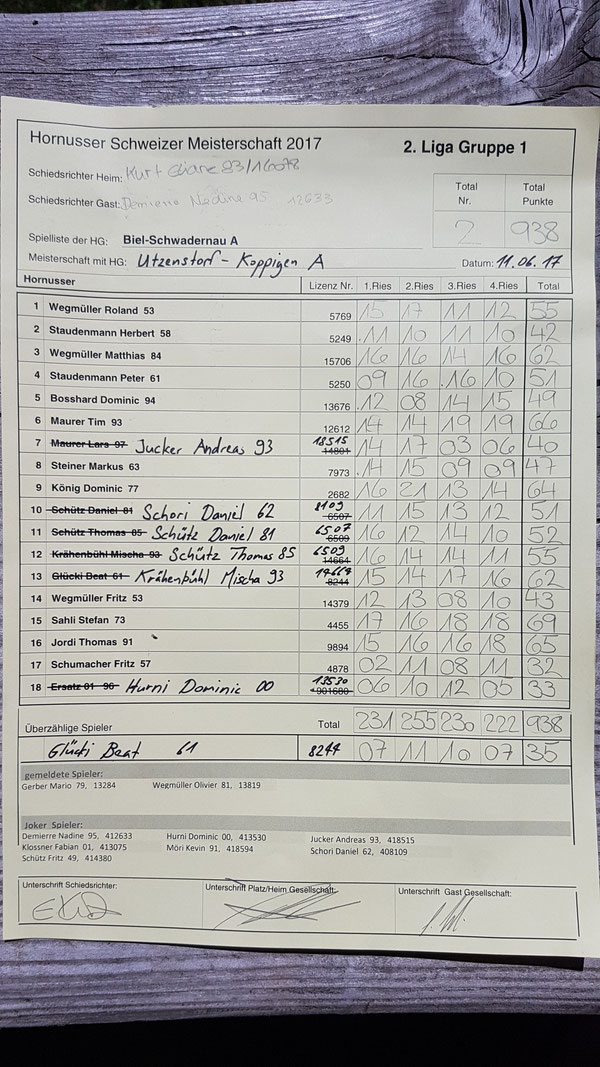 Hornusser Schweizer Meisterschaft 2017 2. Liga Gruppe 1
Schiedsrichter Heim: Kurt 83/16078
Schiedsrichter Gast: Demierre Nadine 95 12633
Total Nr. Total Punkte
2 938
Spielliste der HG: Biel-Schwadernau A
Meisterschaft mit HG: Utzenstorf - Koppigen A Datum: 11.06.17
Hornusser Lizenz Nr. 1.Ries 2.Ries 3.Ries 4.Ries Total
1 Wegmüller Roland 53 5769 15 17 11 12 55
2 Staudenmann Herbert 58 5249 11 10 11 10 42
3 Wegmüller Matthias 84 15706 16 16 14 16 62
4 Staudenmann Peter 61 5250 09 16 16 10 51
5 Bosshard Dominic 94 13676 12 08 14 15 49
6 Maurer Tim 93 12612 14 14 19 19 66
7 Maurer Lars 97 Jucker Andreas 93 18515 14801 14 17 03 06 40
8 Steiner Markus 63 7973 14 15 09 09 47
9 König Dominic 77 2682 16 21 13 14 64
10 Schütz Daniel 81 Schori Daniel 62 8109 6507 11 15 13 12 51
11 Schütz Thomas 85 Schütz Daniel 81 6507 6509 16 12 14 10 52
12 Krähenbühl Mischa 93 Schütz Thomas 85 6509 14664 16 14 14 11 55
13 Glücki Beat 61 Krähenbühl Mischa 93 8244 15 14 17 16 62
14 Wegmüller Fritz 53 14379 12 13 08 10 43
15 Sahli Stefan 73 4455 17 16 18 18 69
16 Jordi Thomas 91 9894 15 16 16 18 65
17 Schumacher Fritz 57 4878 02 11 08 11 32
18 Ersatz 01 96 Hurni Dominic 00 13530 901680 06 10 12 05 33
Überzählige Spieler Total 231 255 230 222 938
Glücki Beat 61 8244 07 11 10 07 35
gemeldete Spieler:
Gerber Mario 79, 13284 Wegmüller Olivier 81, 13819
Joker Spieler:
Demierre Nadine 95, 412633 Hurni Dominic 00, 413530 Jucker Andreas 93, 418515
Klossner Fabian 01, 413075 Möri Kevin 91, 418594 Schori Daniel 62, 408109
Schütz Fritz 49, 414380
Unterschrift Schiedsrichter: Unterschrift Platz/Heim Gesellschaft: Unterschrift Gast Gesellschaft: